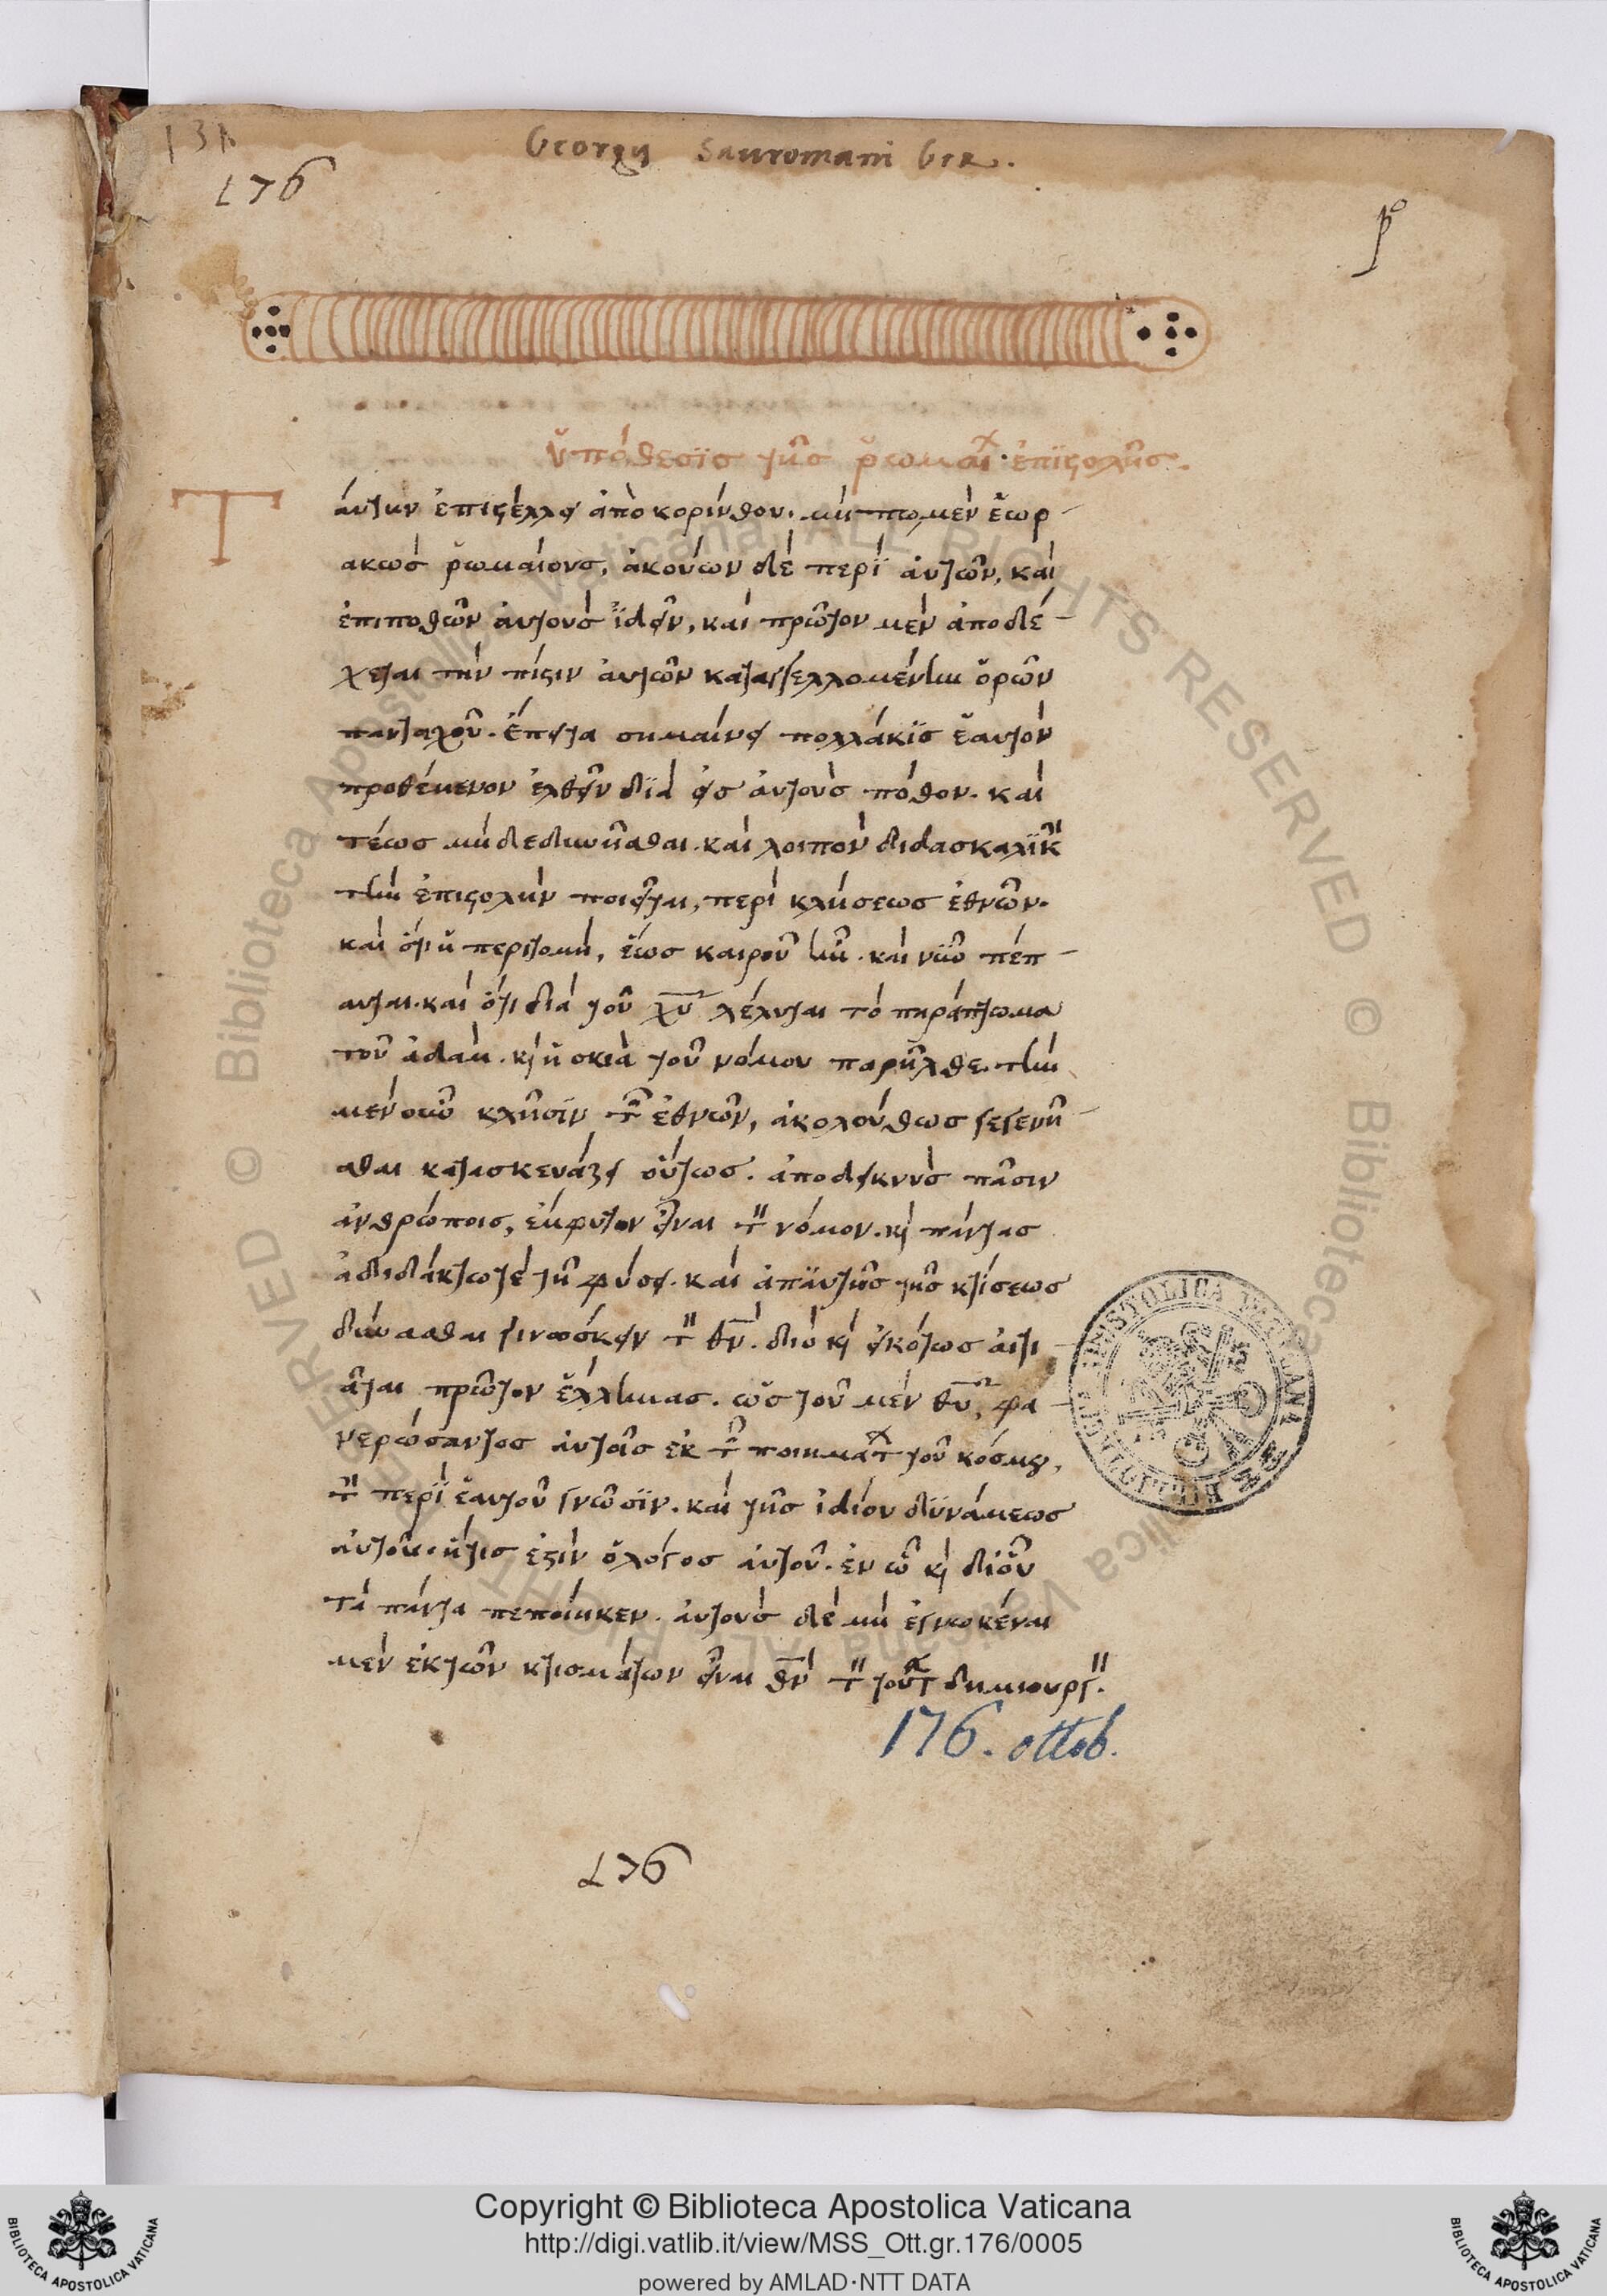 131
Georgii Sauromani Ger.
176
pº
ὑπόθεσϊσ τῆσ ῥωμαϊ ἐπϊστολῆσ.
Τ
άυτην ἐπιστέλλει ἀπὸ κορίνθου. μήπω μὲν ἑωρ
ακὼσ ῥωμαίουσ, ἀκούων δὲ περὶ ἀυτῶν, καὶ
ἐπιποθῶν ἀυτοὺσ ἰδεῖν, και πρῶτον μὲν ἀποδέ
χεται τὴν πίστιν ἀυτῶν καταγγελλομένην ὁρῶν
πανταχοῦ. ἔπειτα σημαίνει πολλάκϊσ ἑαυτὸν
προθέμενον ἐλθεῖν δϊὰ εἰσ ἀυτοὺσ πόθον. καὶ
τέωσ μὴ δεδυνῆσθαι. καὶ λοιπὸν διδασκαλϊκὴ
τὴν ἐπιστολὴν ποιεῖται, περὶ κλήσεωσ ἐθνῶν.
καὶ ὅτι ἡ περιτομὴ, ἕωσ καιροῦ ἦν. και νῦν πέπ
αυται. καὶ ὅτι διὰ τοῦ χυ λέλυται τὸ παράπτωμα
τοῦ ἀδαμ. κ ἡ σκιὰ τοῦ νόμου παρῆλθε. τὴν
μὲν οὖν κλῆσϊν τῶν ἐθνῶν, ἀκολούθωσ γεγενῆ
σθαι κατασκευάζει οὕτωσ. ἀποδεικνὺσ πᾶσιν
ἀνθρώποισ, ἔμφυτον εἶναι τὸν νόμον. κ πάντασ
ἀδιδάκτωστε τῆ φύσει. καὶ ἀπἀυτῆσ τῆσ κτίσεωσ
δύνασθαι γινώσκειν τὸν θν. διὸ κ εἰκότωσ ἀιτι
ᾶται πρῶτον ἕλληνασ. ὡσ τοῦ μὲν θυ, φα
νερώσαντοσ ἀυτοῖσ ἐκ τῶν ποιημάτ τοῦ κόσμου,
τὴν περὶ ἑαυτοῦ γνῶσϊν. καὶ τῆσ ἰδίου δϋνάμεωσ
ἀυτοῦ. ἥτισ ἐστὶν ὁλόγοσ ἀυτοῦ. ἐν ὧ κ διοῦ
τὰ πάντα πεποίηκεν. ἀυτοὺσ δὲ μὴ ἐγνωκέναι
μὲν ἐκτῶν κτισμάτων εἶναι θν τὸν τούτ δημιουργ.
176. ottob.
176
Copyright © Biblioteca Apostolica Vaticana
http://digi.vatlib.it/view/MSS_Ott.gr.176/0005
powered by AMLAD·NTT DATA